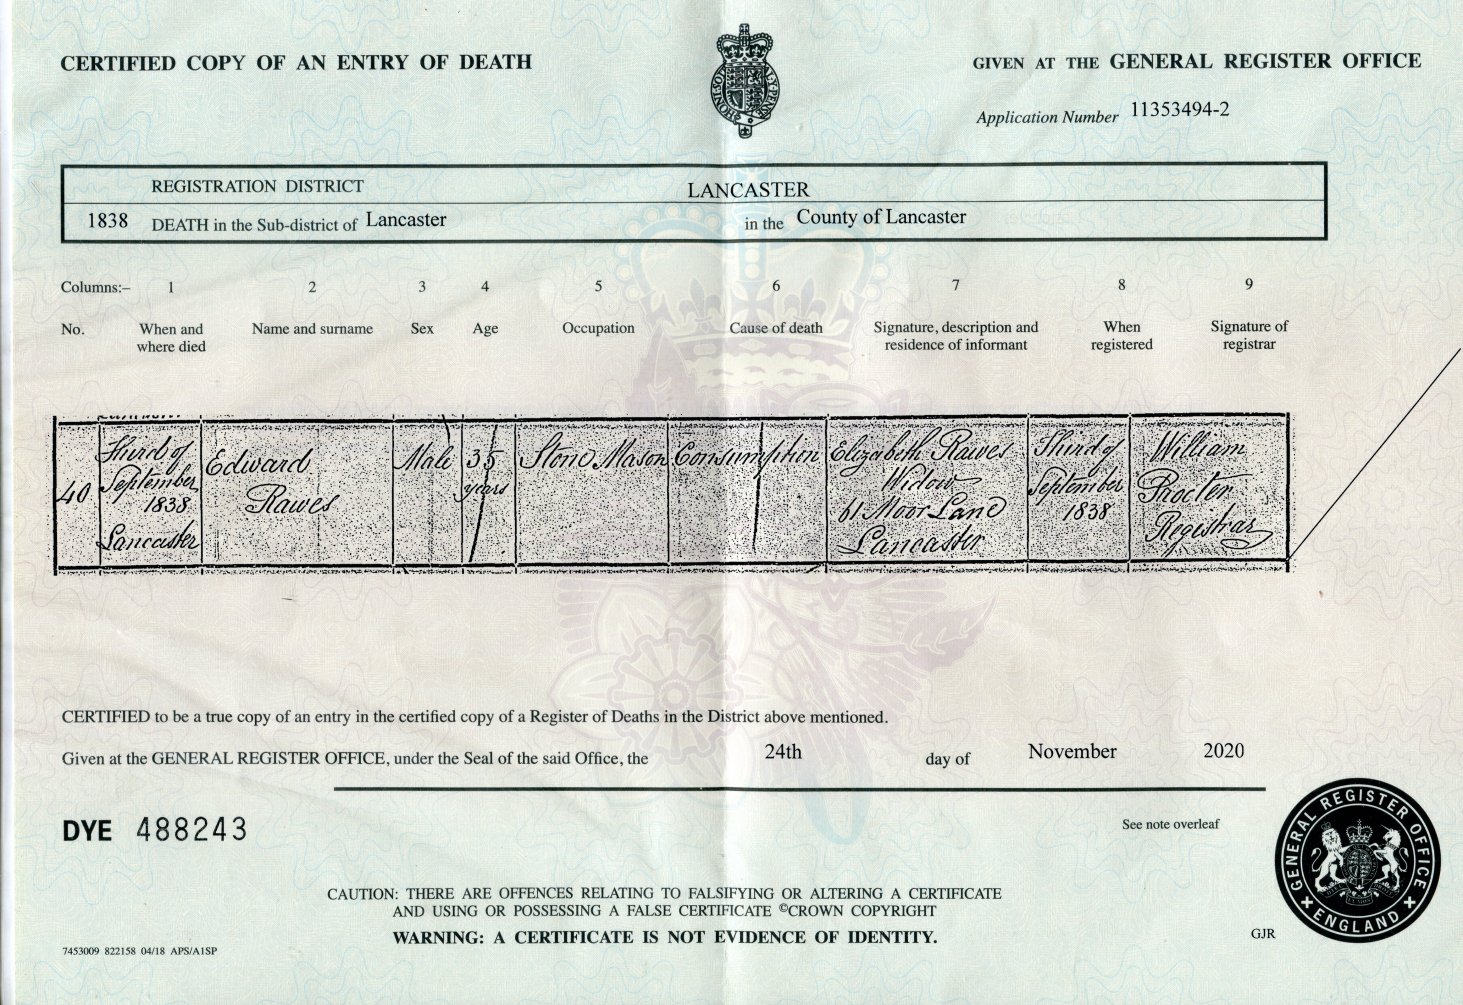 CERTIFIED COPY OF AN ENTRY OF DEATH
GIVEN AT THE GENERAL REGISTER OFFICE
HONI SOIT QUI MAL Y PENSE
Application Number 11353494-2
REGISTRATION DISTRICT LANCASTER
1838 DEATH in the Sub-district of Lancaster in the County of Lancaster
Columns:– 1 2 3 4 5 6 7 8 9
No. When and where died Name and surname Sex Age Occupation Cause of death Signature, description and residence of informant When registered Signature of registrar
40
Third of
September
1838
Lancaster
Edward
Rawes
Male
35
years
Stone Mason
Consumption
Elizabeth Rawes
Widow
61 Moor Lane
Lancaster
Third of
September
1838
William
Procter
Registrar
CERTIFIED to be a true copy of an entry in the certified copy of a Register of Deaths in the District above mentioned.
Given at the GENERAL REGISTER OFFICE, under the Seal of the said Office, the 24th day of November 2020
DYE 488243
See note overleaf
GENERAL REGISTER OFFICE
ENGLAND
CAUTION: THERE ARE OFFENCES RELATING TO FALSIFYING OR ALTERING A CERTIFICATE
AND USING OR POSSESSING A FALSE CERTIFICATE ©CROWN COPYRIGHT
WARNING: A CERTIFICATE IS NOT EVIDENCE OF IDENTITY.
GJR
7453009 822158 04/18 APS/A1SP